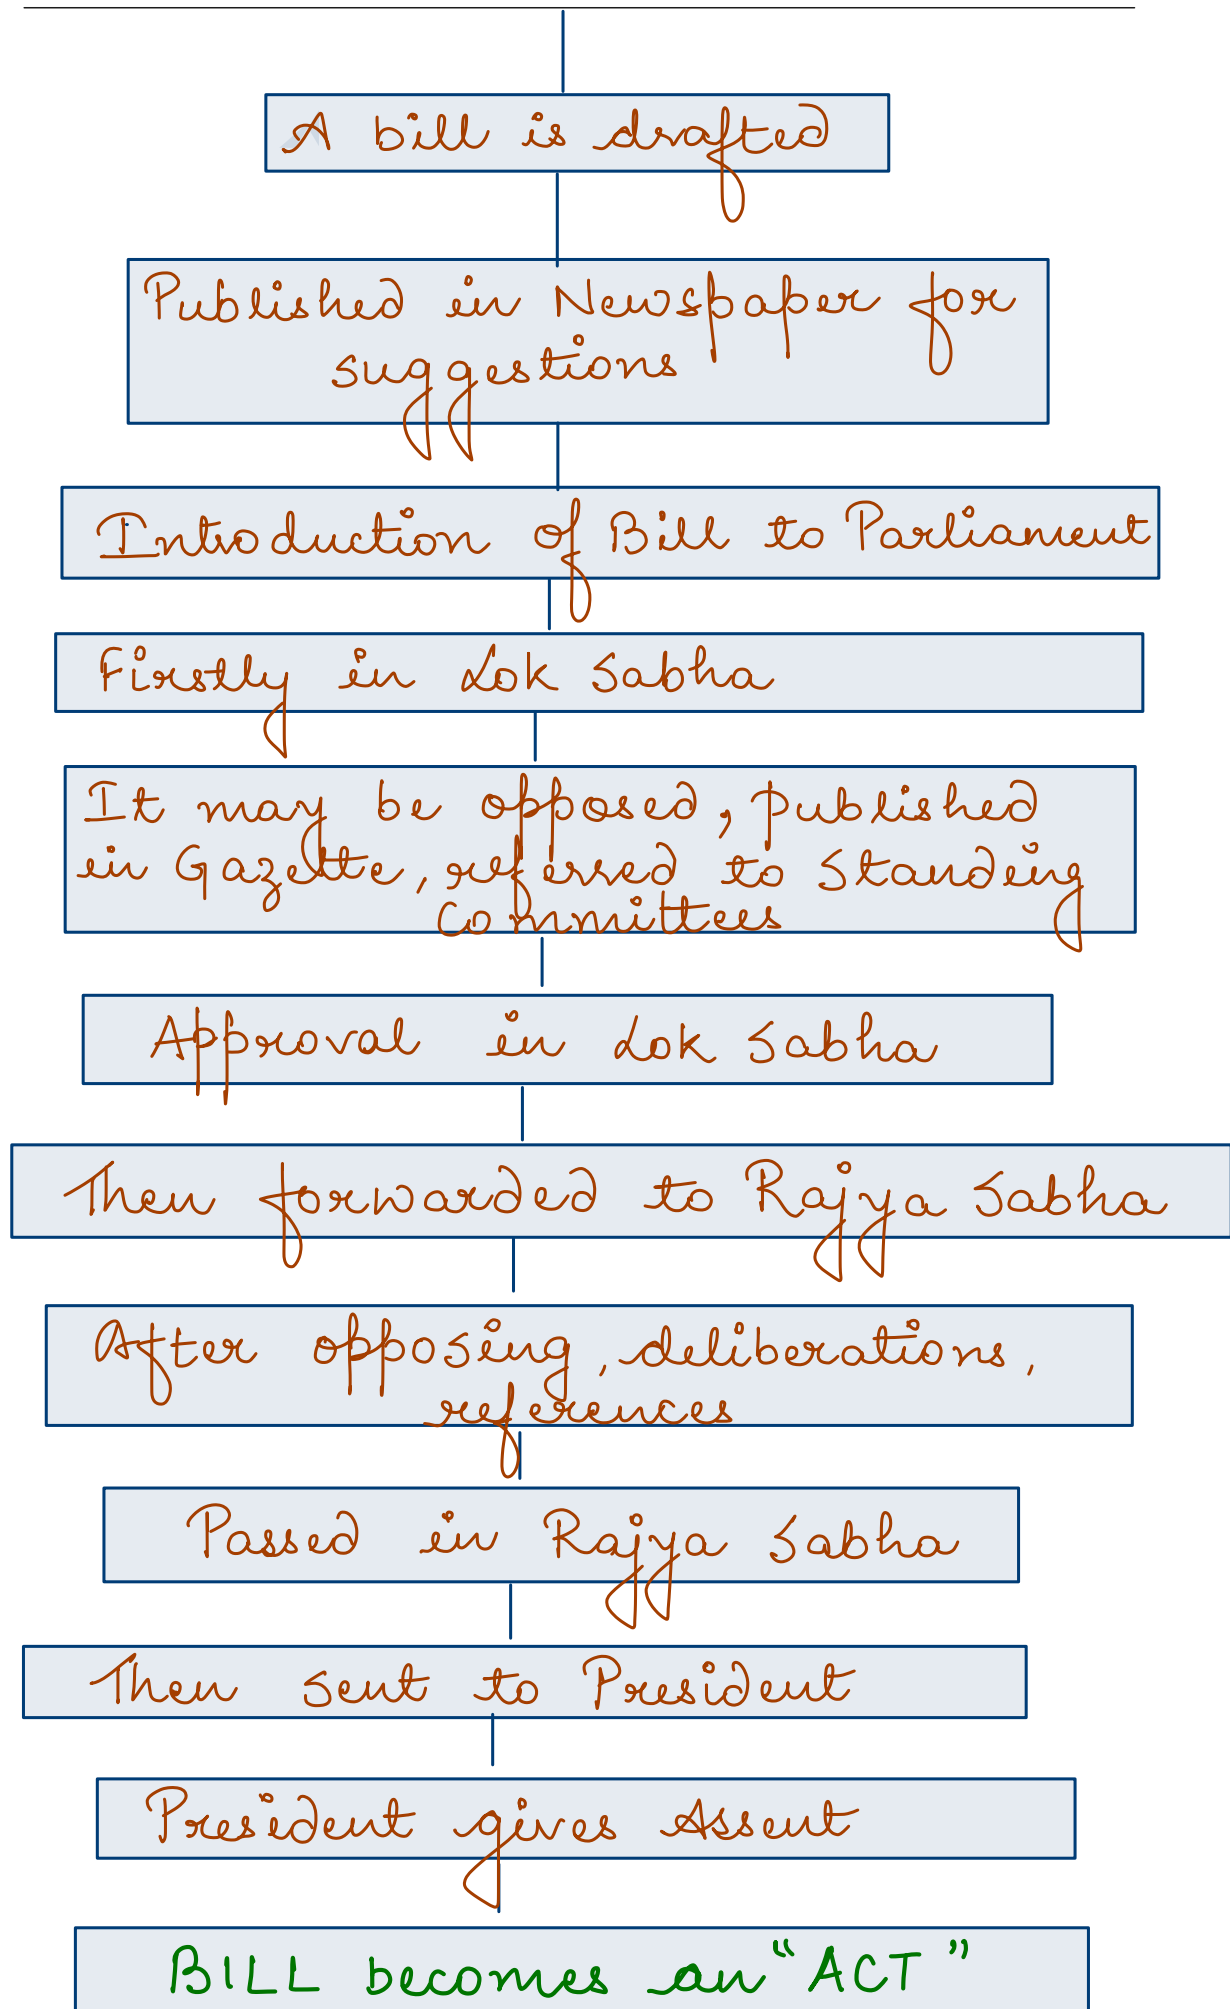 A bill is drafted
Published in Newspaper for
suggestions
Introduction of Bill to Parliament
Firstly in Lok Sabha
It may be opposed, published
in Gazette, referred to Standing
Committees
Approval in Lok Sabha
Then forwarded to Rajya Sabha
After opposing, deliberations,
references
Passed in Rajya Sabha
Then sent to President
President gives Assent
BILL becomes an "ACT"